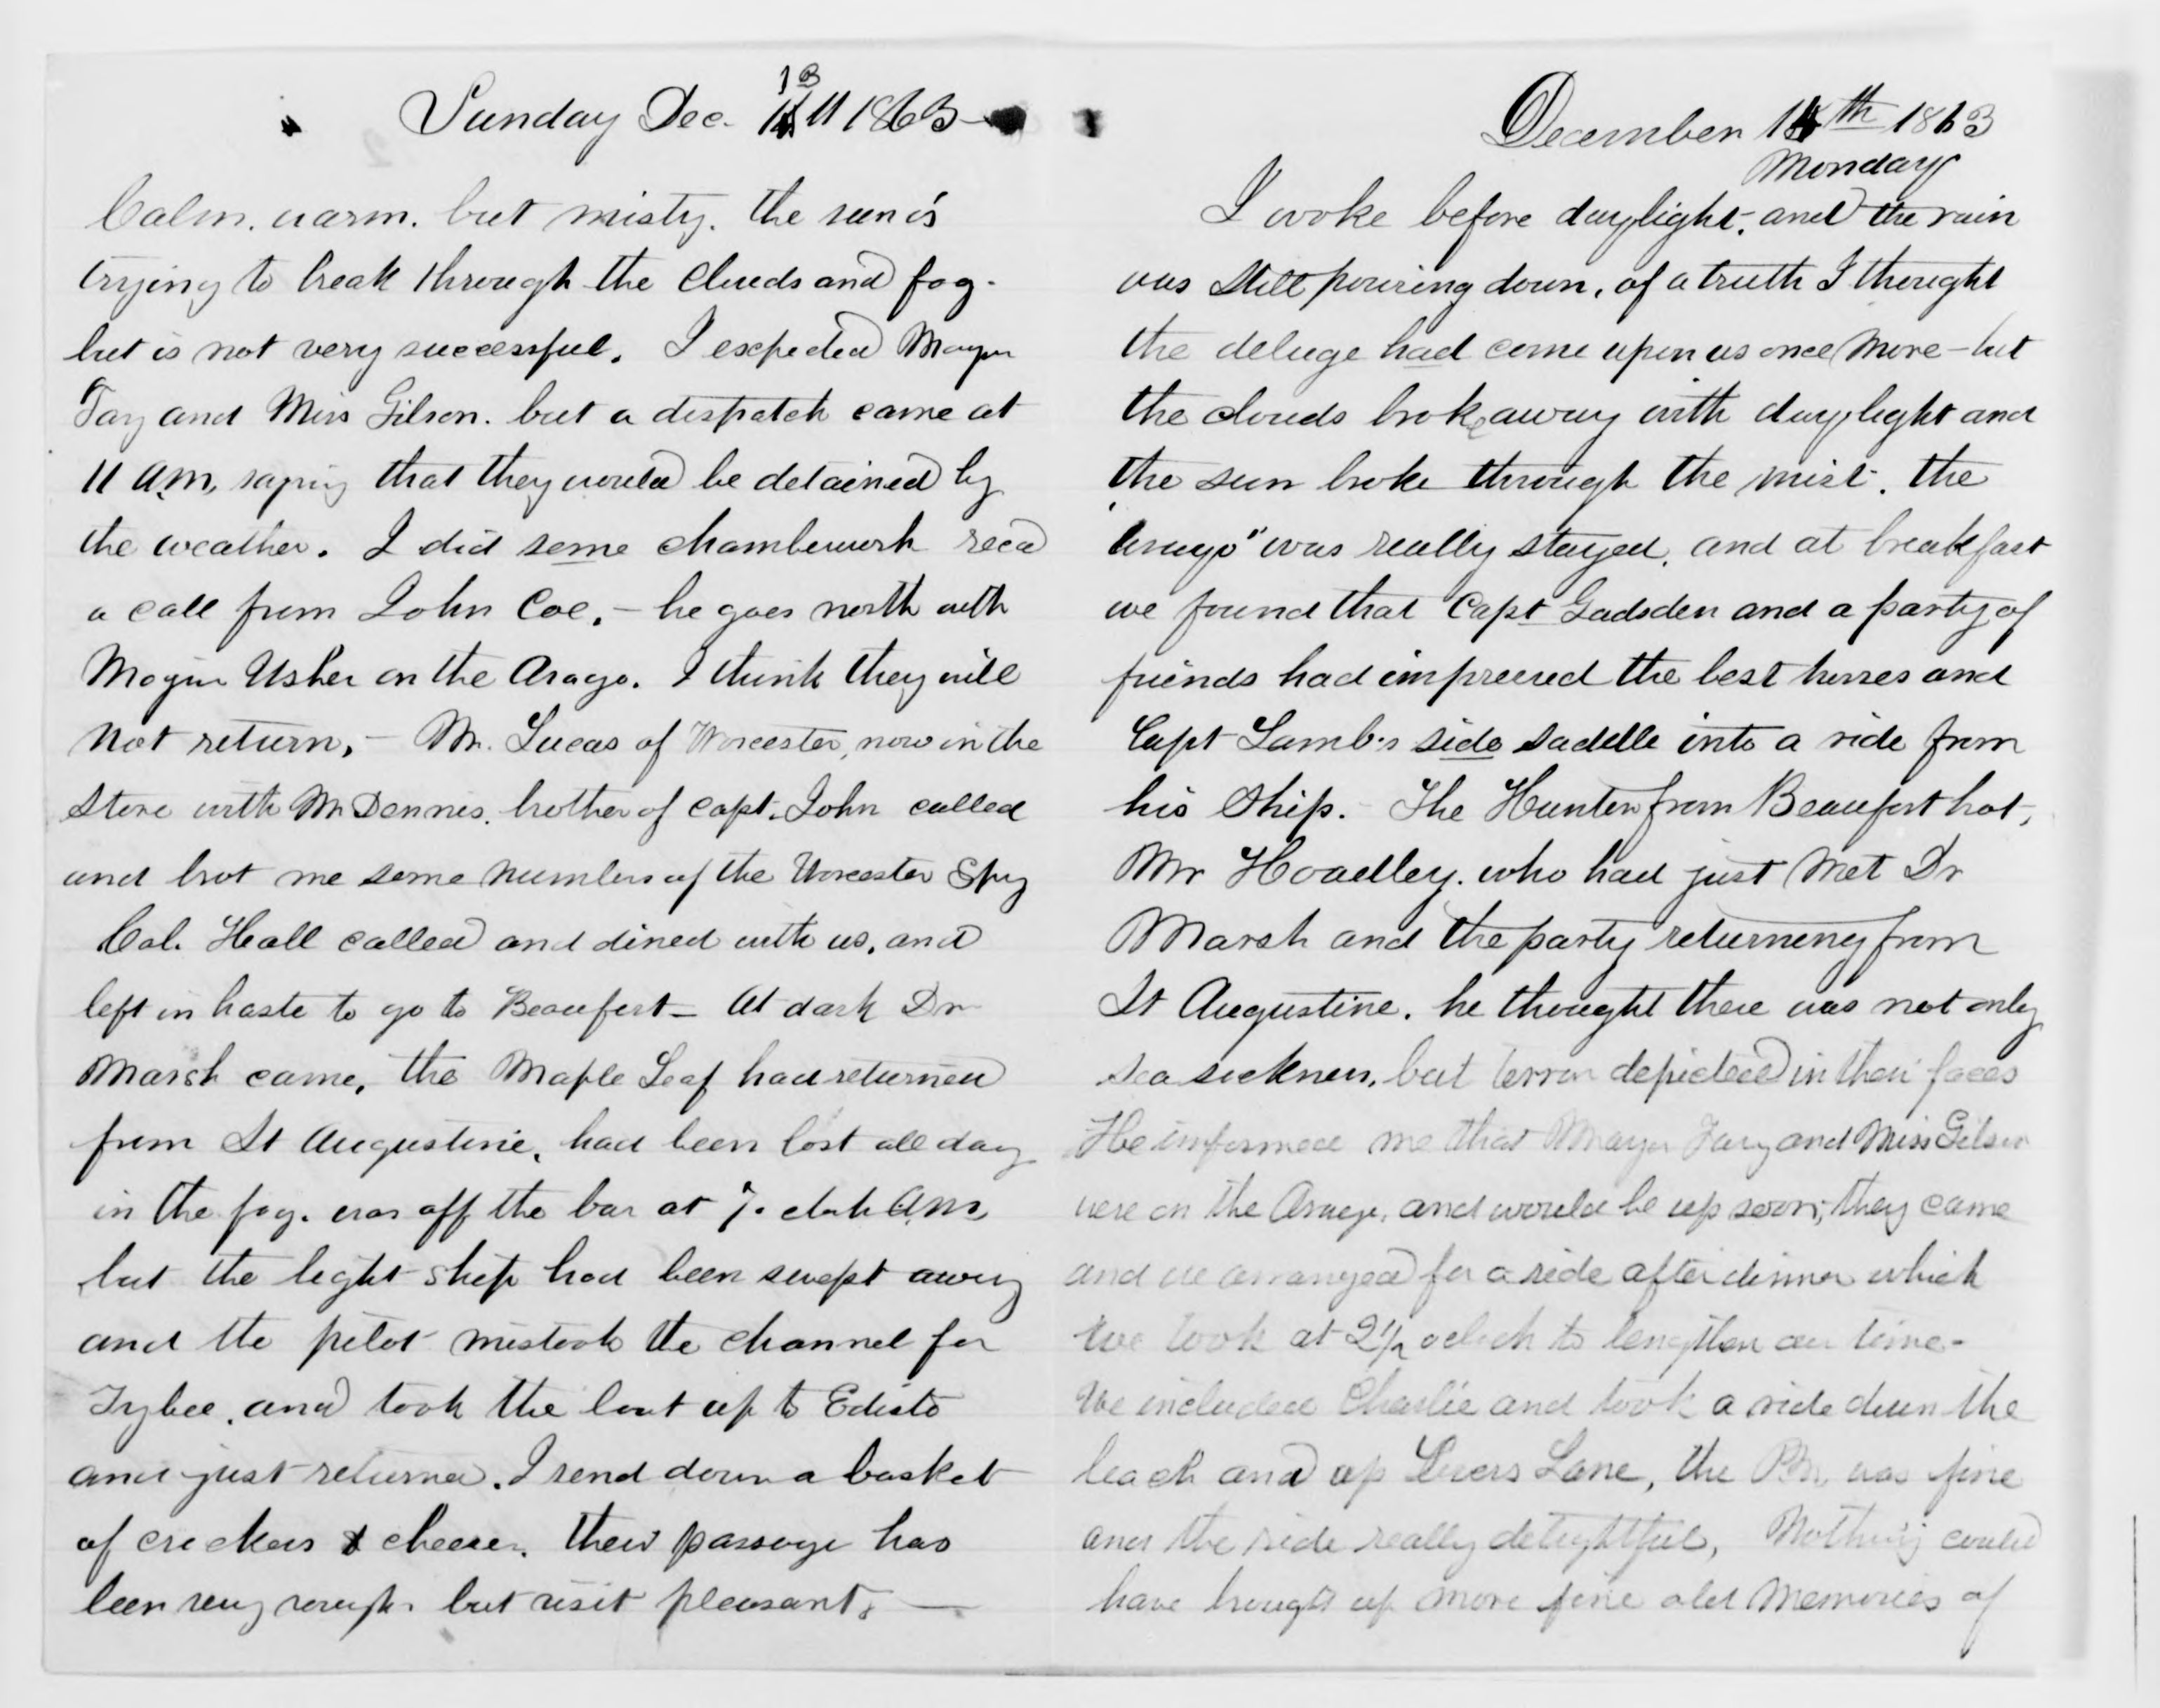 Sunday Dec. 13 1863
Calm. warm. but misty. the sun is
trying to break through the clouds and fog.
but is not very successful. I expected Mayor
Fay and Miss Gilson. but a dispatch came at
11 A.M. saying that they would be detained by
the weather. I did some chamberwork recd
a call from John Coe, – he goes north with
Major Usher on the Arago. I think they will
not return, – Mr. Lucas of Worcester, now in the
store with Mr Dennis. brother of Capt. John called
and brot me some numbers of the Worcester Spy
Col. Hall called and dined with us. and
left in haste to go to Beaufort – At dark Dr
Marsh came, the Maple Leaf had returned
from St Augustine, had been lost all day
in the fog. was off the bar at 7. clock A.M,
but the light ship had been swept away
and the pilot mistook the channel for
Tybee, and took the boat up to Edisto
and just returned. I send down a basket
of crackers & cheese. their passage has
been very rough. but visit pleasant. —
December 14th 1863
Monday
I woke before daylight, and the rain
was still pouring down, of a truth I thought
the deluge had come upon us once more – but
the clouds broke away with daylight and
the sun broke through the mist. the
"Arago" was really stayed, and at breakfast
we found that Capt Gadsden and a party of
friends had impressed the best horses and
Capt Lamb's side saddle into a ride from
his ship. – The Hunter from Beaufort brot,
Mr Hoadley. who had just met Dr
Marsh and the party returning from
St Augustine. he thought there was not only
sea sickness, but terror depicted in their faces
He informed me that Mayor Fay and Miss Gilson
were on the Arago, and would be up soon; they came
and we arranged for a ride after dinner which
we took at 2½ oclock to lengthen our time –
We included Charlie and took a ride down the
beach and up Lovers Lane, the PM. was fine
and the ride really delightful, Nothing could
have brought up more fine old memories of